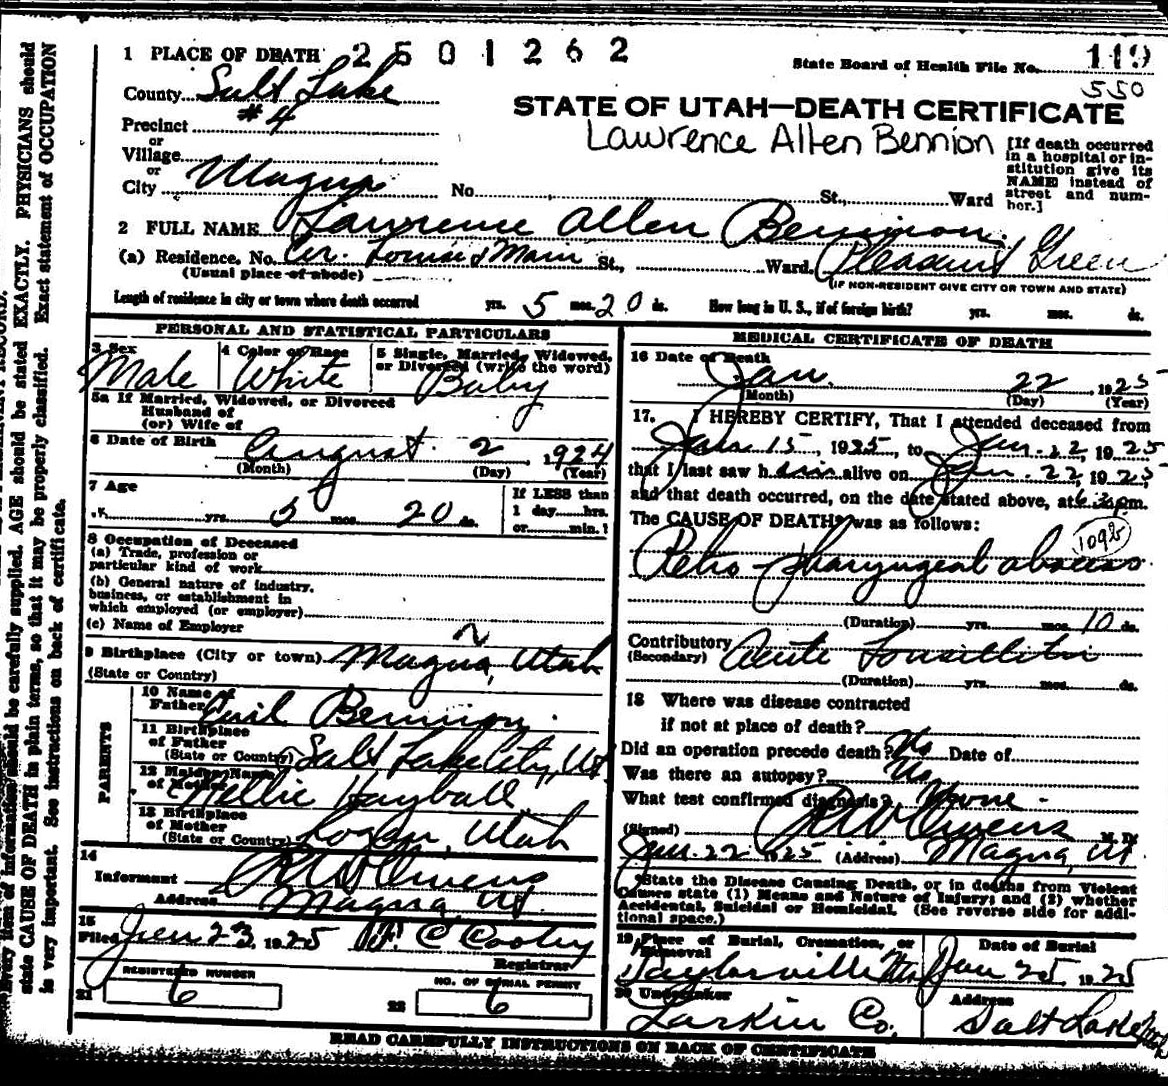 1 PLACE OF DEATH 2501262
State Board of Health File No. 119
550
County Salt Lake
STATE OF UTAH—DEATH CERTIFICATE
Precinct #4
Lawrence Allen Bennion
or
Village
or
City Magna No. St., Ward
[If death occurred
in a hospital or in-
stitution give its
NAME instead of
street and num-
ber.]
2 FULL NAME Lawrence Allen Bennion.
(a) Residence, No. Cor. Louise & Main St., Ward. Pleasant Green
(Usual place of abode) (IF NON-RESIDENT GIVE CITY OR TOWN AND STATE)
Length of residence in city or town where death occurred yrs. 5 mos. 20 ds. How long in U. S., if of foreign birth? yrs. mos. ds.
PERSONAL AND STATISTICAL PARTICULARS
3 Sex Male
4 Color or Race White
5 Single, Married, Widowed,
or Divorced (write the word)
Baby
5a If Married, Widowed, or Divorced
Husband of
(or) Wife of
6 Date of Birth August 2, 1924
(Month) (Day) (Year)
7 Age
yrs. 5 mos. 20 ds.
If LESS than
1 day......hrs.
or......min.!
8 Occupation of Deceased
(a) Trade, profession or
particular kind of work
(b) General nature of industry,
business, or establishment in
which employed (or employer)
(c) Name of Employer
9 Birthplace (City or town) Magna, Utah
(State or Country)
PARENTS
10 Name of
Father Bennion.
11 Birthplace
of Father
(State or Country) Salt Lake City, Ut
12 Maiden Name
of Mother Nellie Hayball
13 Birthplace
of Mother
(State or Country) Logan, Utah
14
Informant R W Owens
Address Magna, Ut.
15
Filed Jan 23, 1925 C Cooley
Registrar
REGISTERED NUMBER
21 6
NO. OF BURIAL PERMIT
22 6
MEDICAL CERTIFICATE OF DEATH
16 Date of Death
Jan. 22, 1925
(Month) (Day) (Year)
17. I HEREBY CERTIFY, That I attended deceased from
Jan 15, 1925, to Jan. 22, 1925
that I last saw him alive on Jan. 22, 1925
and that death occurred, on the date stated above, at 6.30 pm.
The CAUSE OF DEATH* was as follows:
109b
Retro-pharyngeal abscess
(Duration) yrs. mos. 10 ds.
Contributory Acute Tonsillitis
(Secondary)
(Duration) yrs. mos. ds.
18 Where was disease contracted
if not at place of death?
Did an operation precede death? No Date of
Was there an autopsy? No
What test confirmed diagnosis? None.
(Signed) R W Owens M. D.
Jan. 22 1925 (Address) Magna, Ut
*State the Disease Causing Death, or in deaths from Violent
Causes state (1) Means and Nature of Injury; and (2) whether
Accidental, Suicidal or Homicidal. (See reverse side for addi-
tional space.)
19 Place of Burial, Cremation, or
Removal
Taylorsville
Date of Burial
Jan 25, 1925
20 Undertaker
Larkin Co.
Address
Salt Lake
READ CAREFULLY INSTRUCTIONS ON BACK OF CERTIFICATE
information should be carefully supplied. AGE should be stated EXACTLY. PHYSICIANS should
state CAUSE OF DEATH in plain terms, so that it may be properly classified. Exact statement of OCCUPATION
is very important. See instructions on back of certificate.